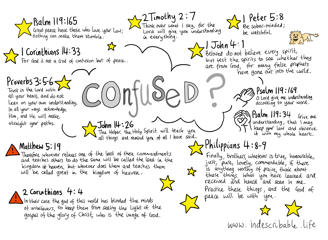 Psalm 119:165
Great peace have those who love your law;
Nothing can make them stumble.
2 Timothy 2:7
Think over what I say, for the
Lord will give you understanding
in everything.
1 Peter 5:8
Be sober-minded;
be watchful.
1 Corinthians 14:33
For God is not a God of confusion but of peace.
1 John 4:1
Beloved do not believe every spirit,
but test the spirits to see whether they
are from God, for many false prophets
have gone out into the world.
Proverbs 3:5-6
Trust in the Lord with
all your heart, and do not
lean on your own understanding.
In all your ways acknowledge
Him, and He will make
straight your paths.
CONFUSED?
Psalm 119:169
O Lord give me understanding
according to your word.
Psalm 119:34
Give me
understanding, that I may
keep your law and observe
it with my whole heart.
John 14:26
The Helper, the Holy Spirit will teach you
all things and remind you of all I have said.
Matthew 5:19
Therefore whoever relaxes one of the least of these commandments
and teaches others to do the same will be called the least in the
kingdom of heaven, but whoever does them and teaches them
will be called great in the kingdom of heaven.
Philippians 4:8-9
Finally, brothers, whatever is true, honourable,
just, pure, lovely, commendable, if there
is anything worthy of praise, think about
these things. What you have learned and
received and heard and seen in me.
Practice these things, and the God of
peace will be with you.
2 Corinthians 4:4
In their case the god of this world has blinded the minds
of unbelievers, to keep them from seeing the light of the
gospel of the glory of Christ, who is the image of God.
www.indescribable.life